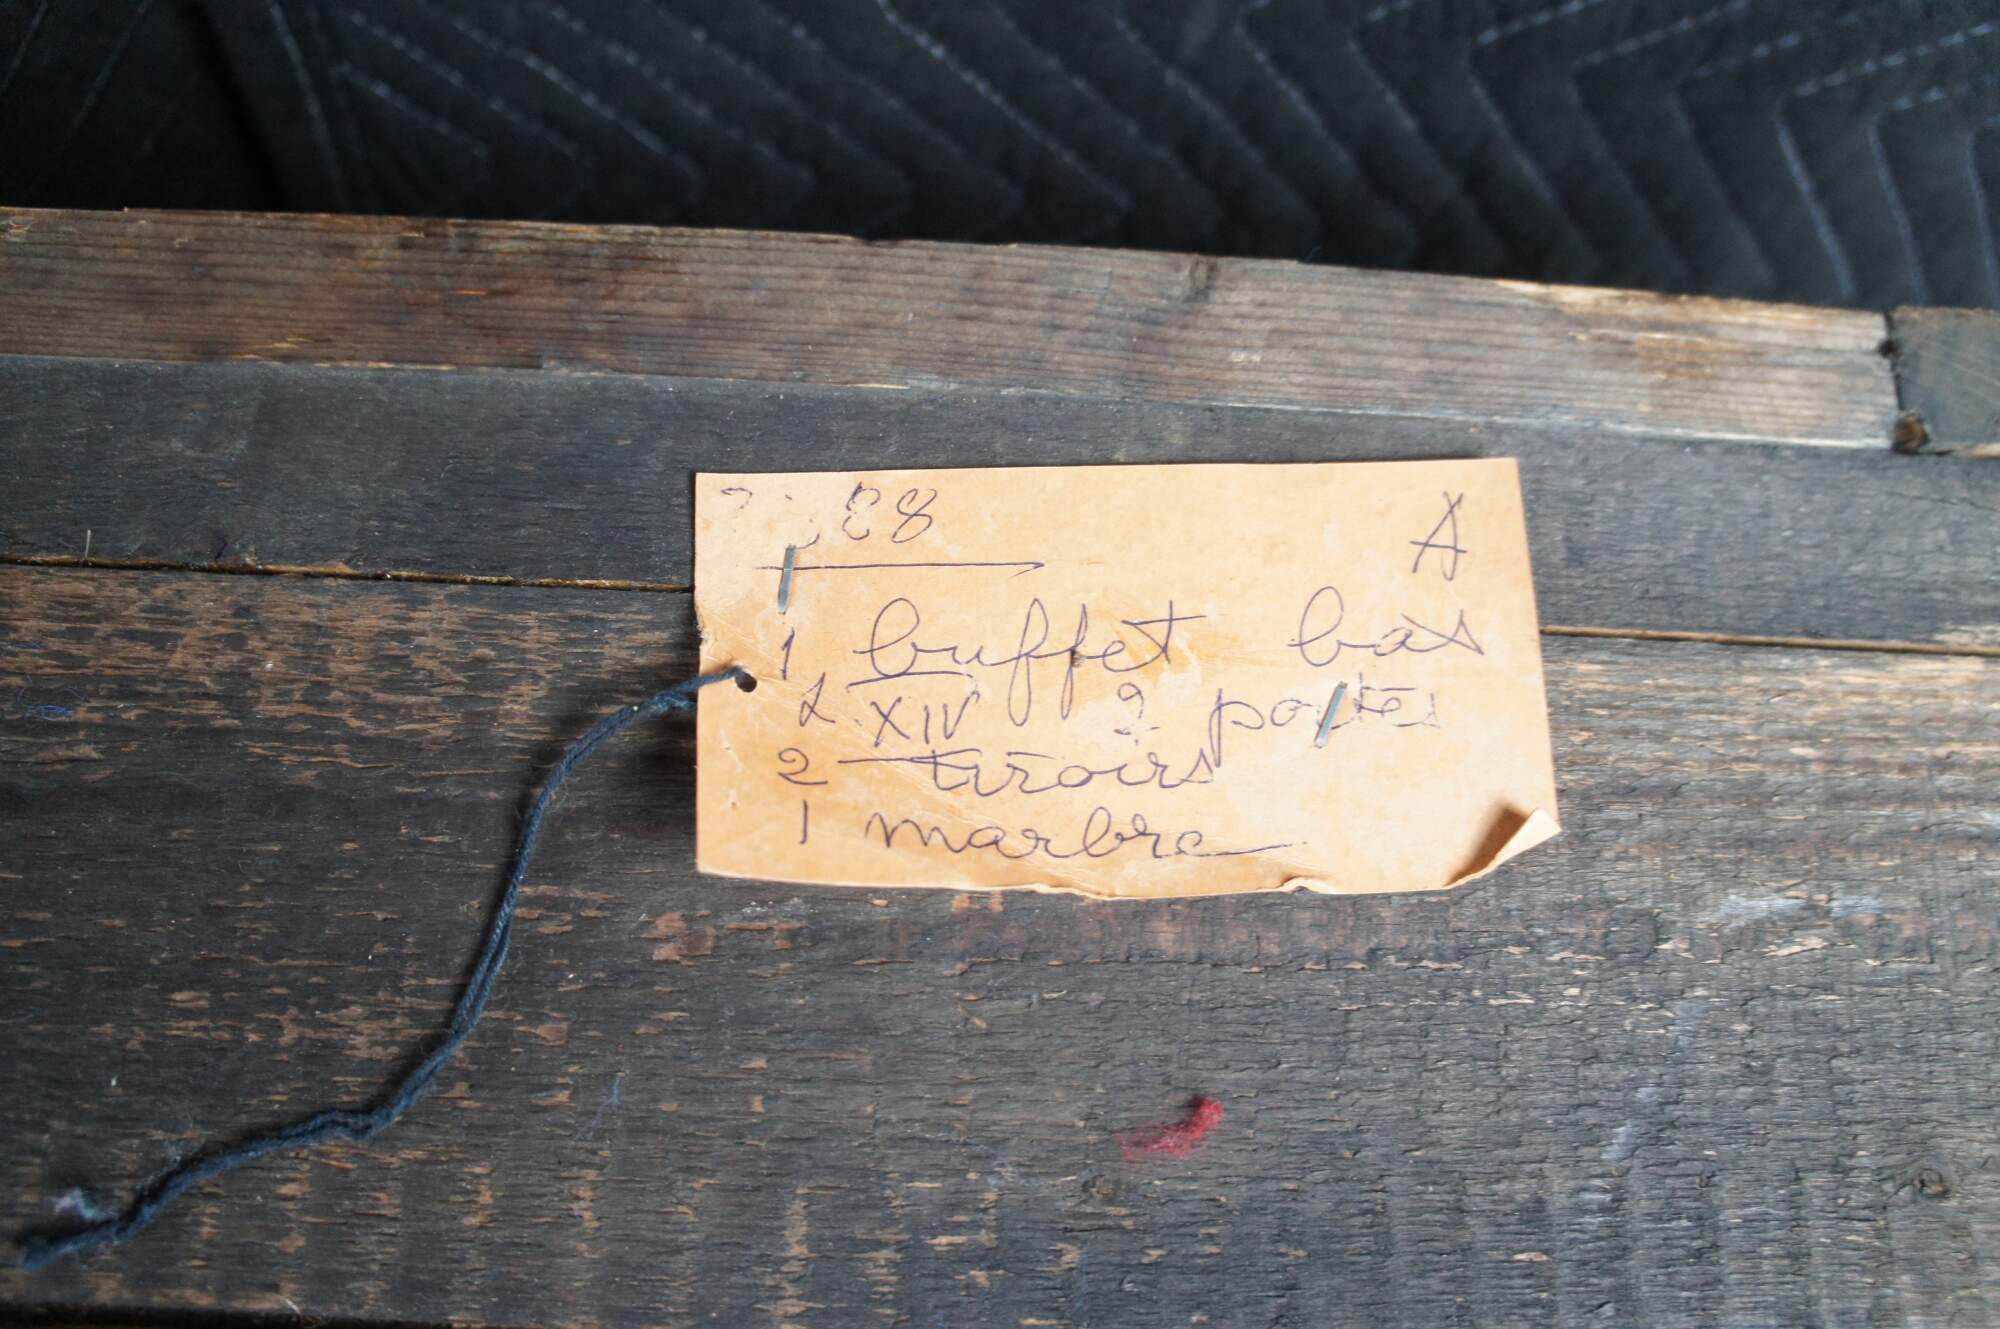 88 A
1 buffet bas
L XIV 2 portes
2 tiroirs
1 marbre